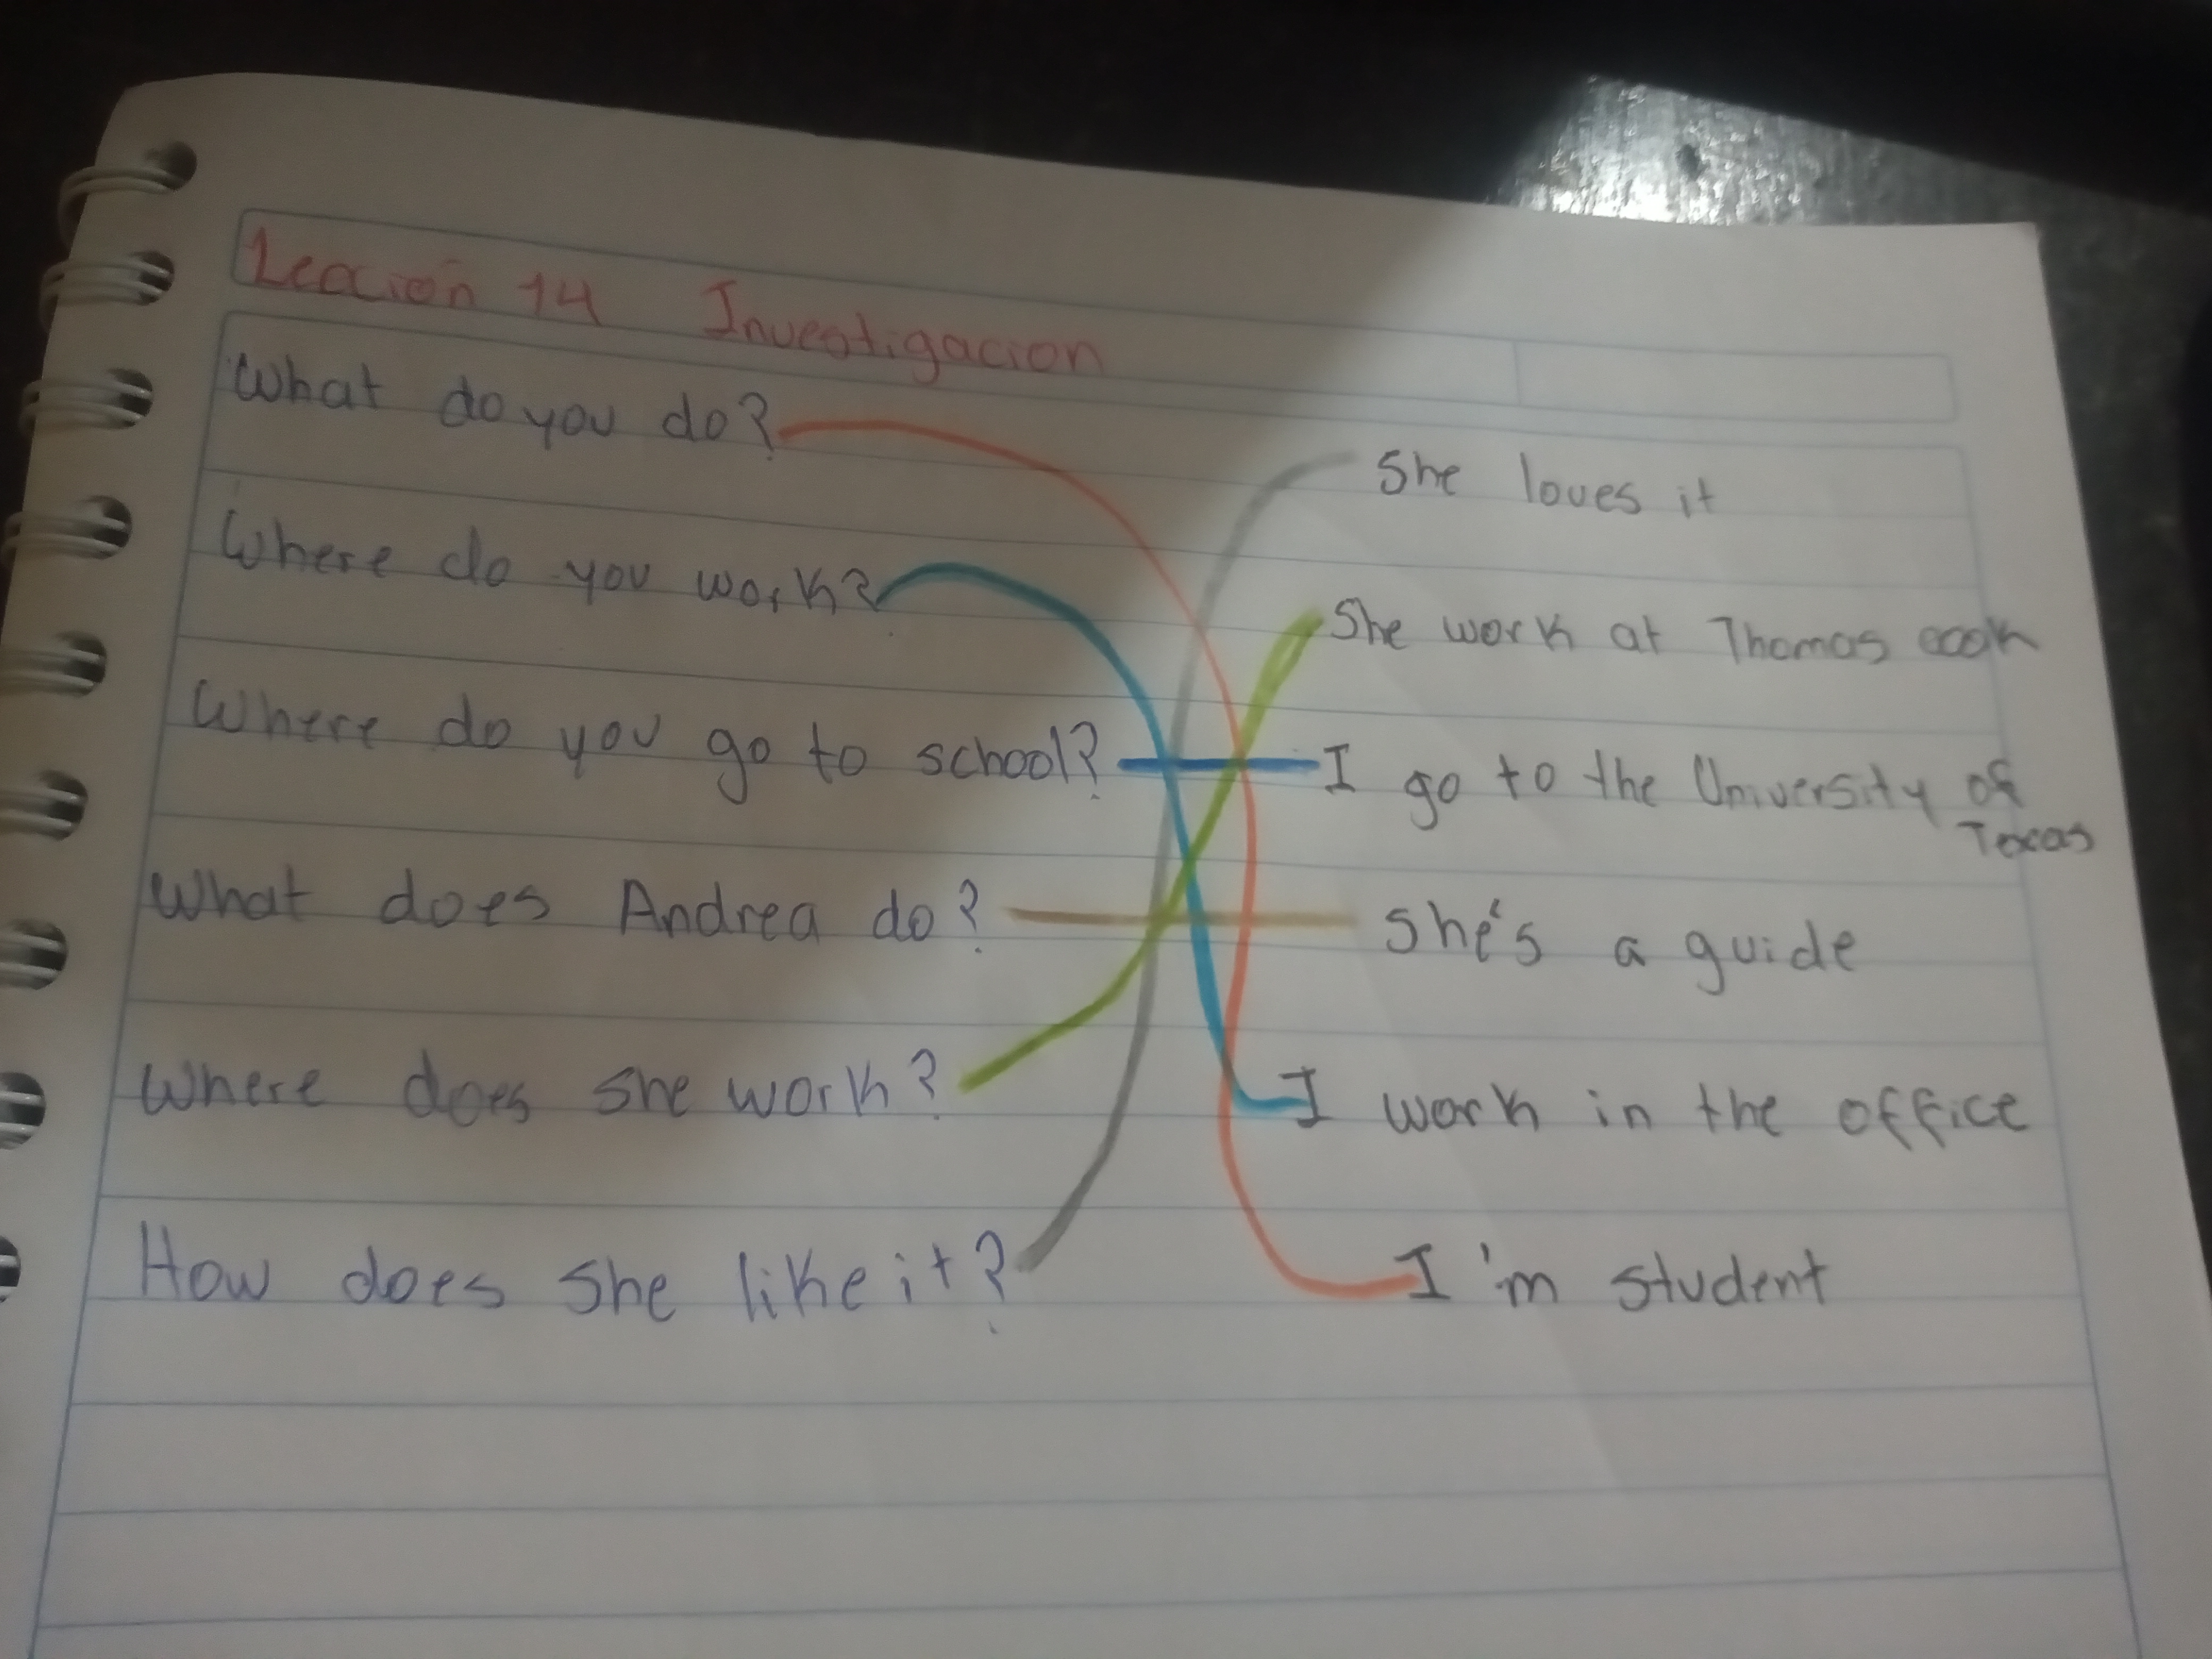 Lección 14 Investigacion
What do you do?
She loves it
Where do you work?
She work at Thomas cook
Where do you go to school?
I go to the University of
Texas
What does Andrea do?
She's a guide
Where does she work?
I work in the office
How does she like it?
I'm student